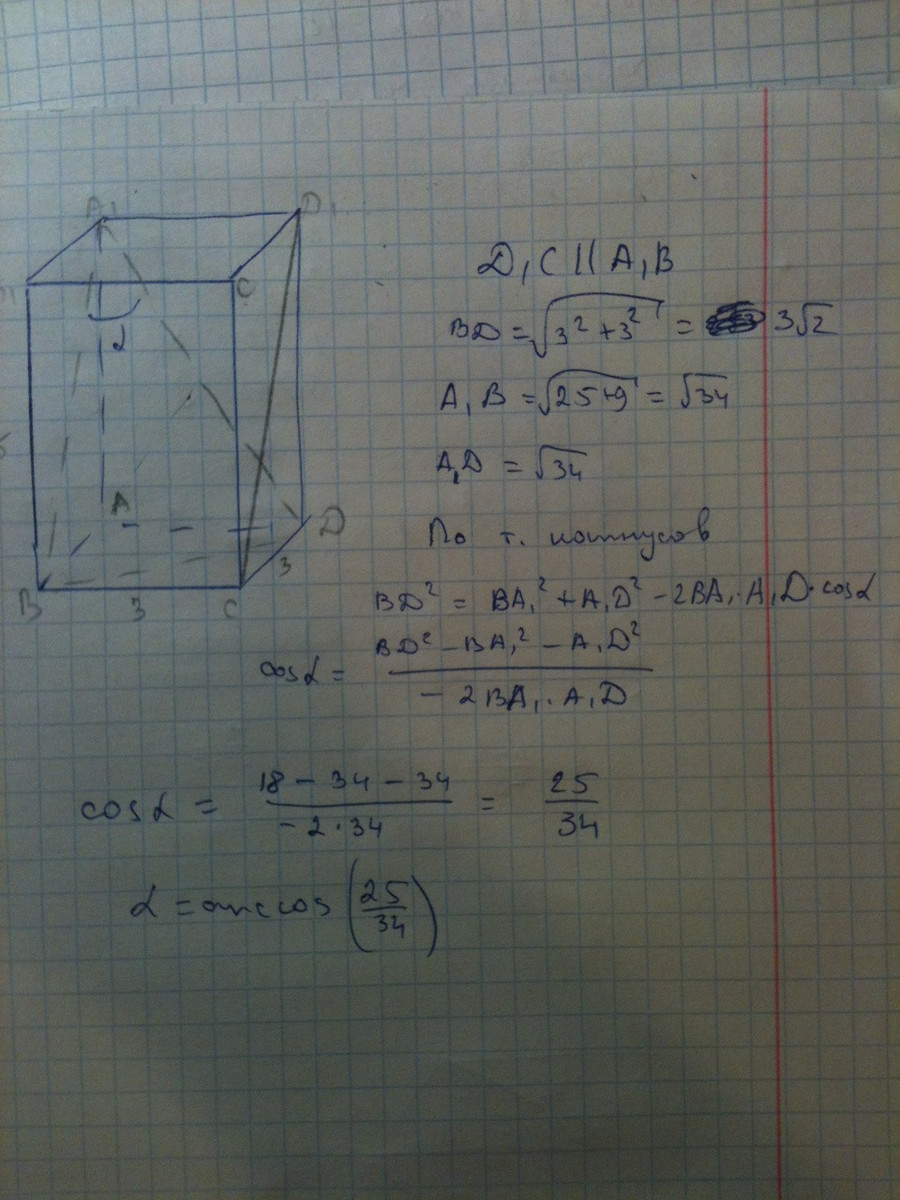 A₁ D₁
B₁ C
α
5
A
D
3
B 3 C
D₁C || A₁B
BD = √(3² + 3²) = 3√2
A₁B = √(25+9) = √34
A₁D = √34
По т. косинусов
BD² = BA₁² + A₁D² - 2BA₁·A₁D·cosα
cosα = (BD² - BA₁² - A₁D²) / (-2BA₁·A₁D)
cosα = (18 - 34 - 34) / (-2·34) = 25/34
α = arccos(25/34)